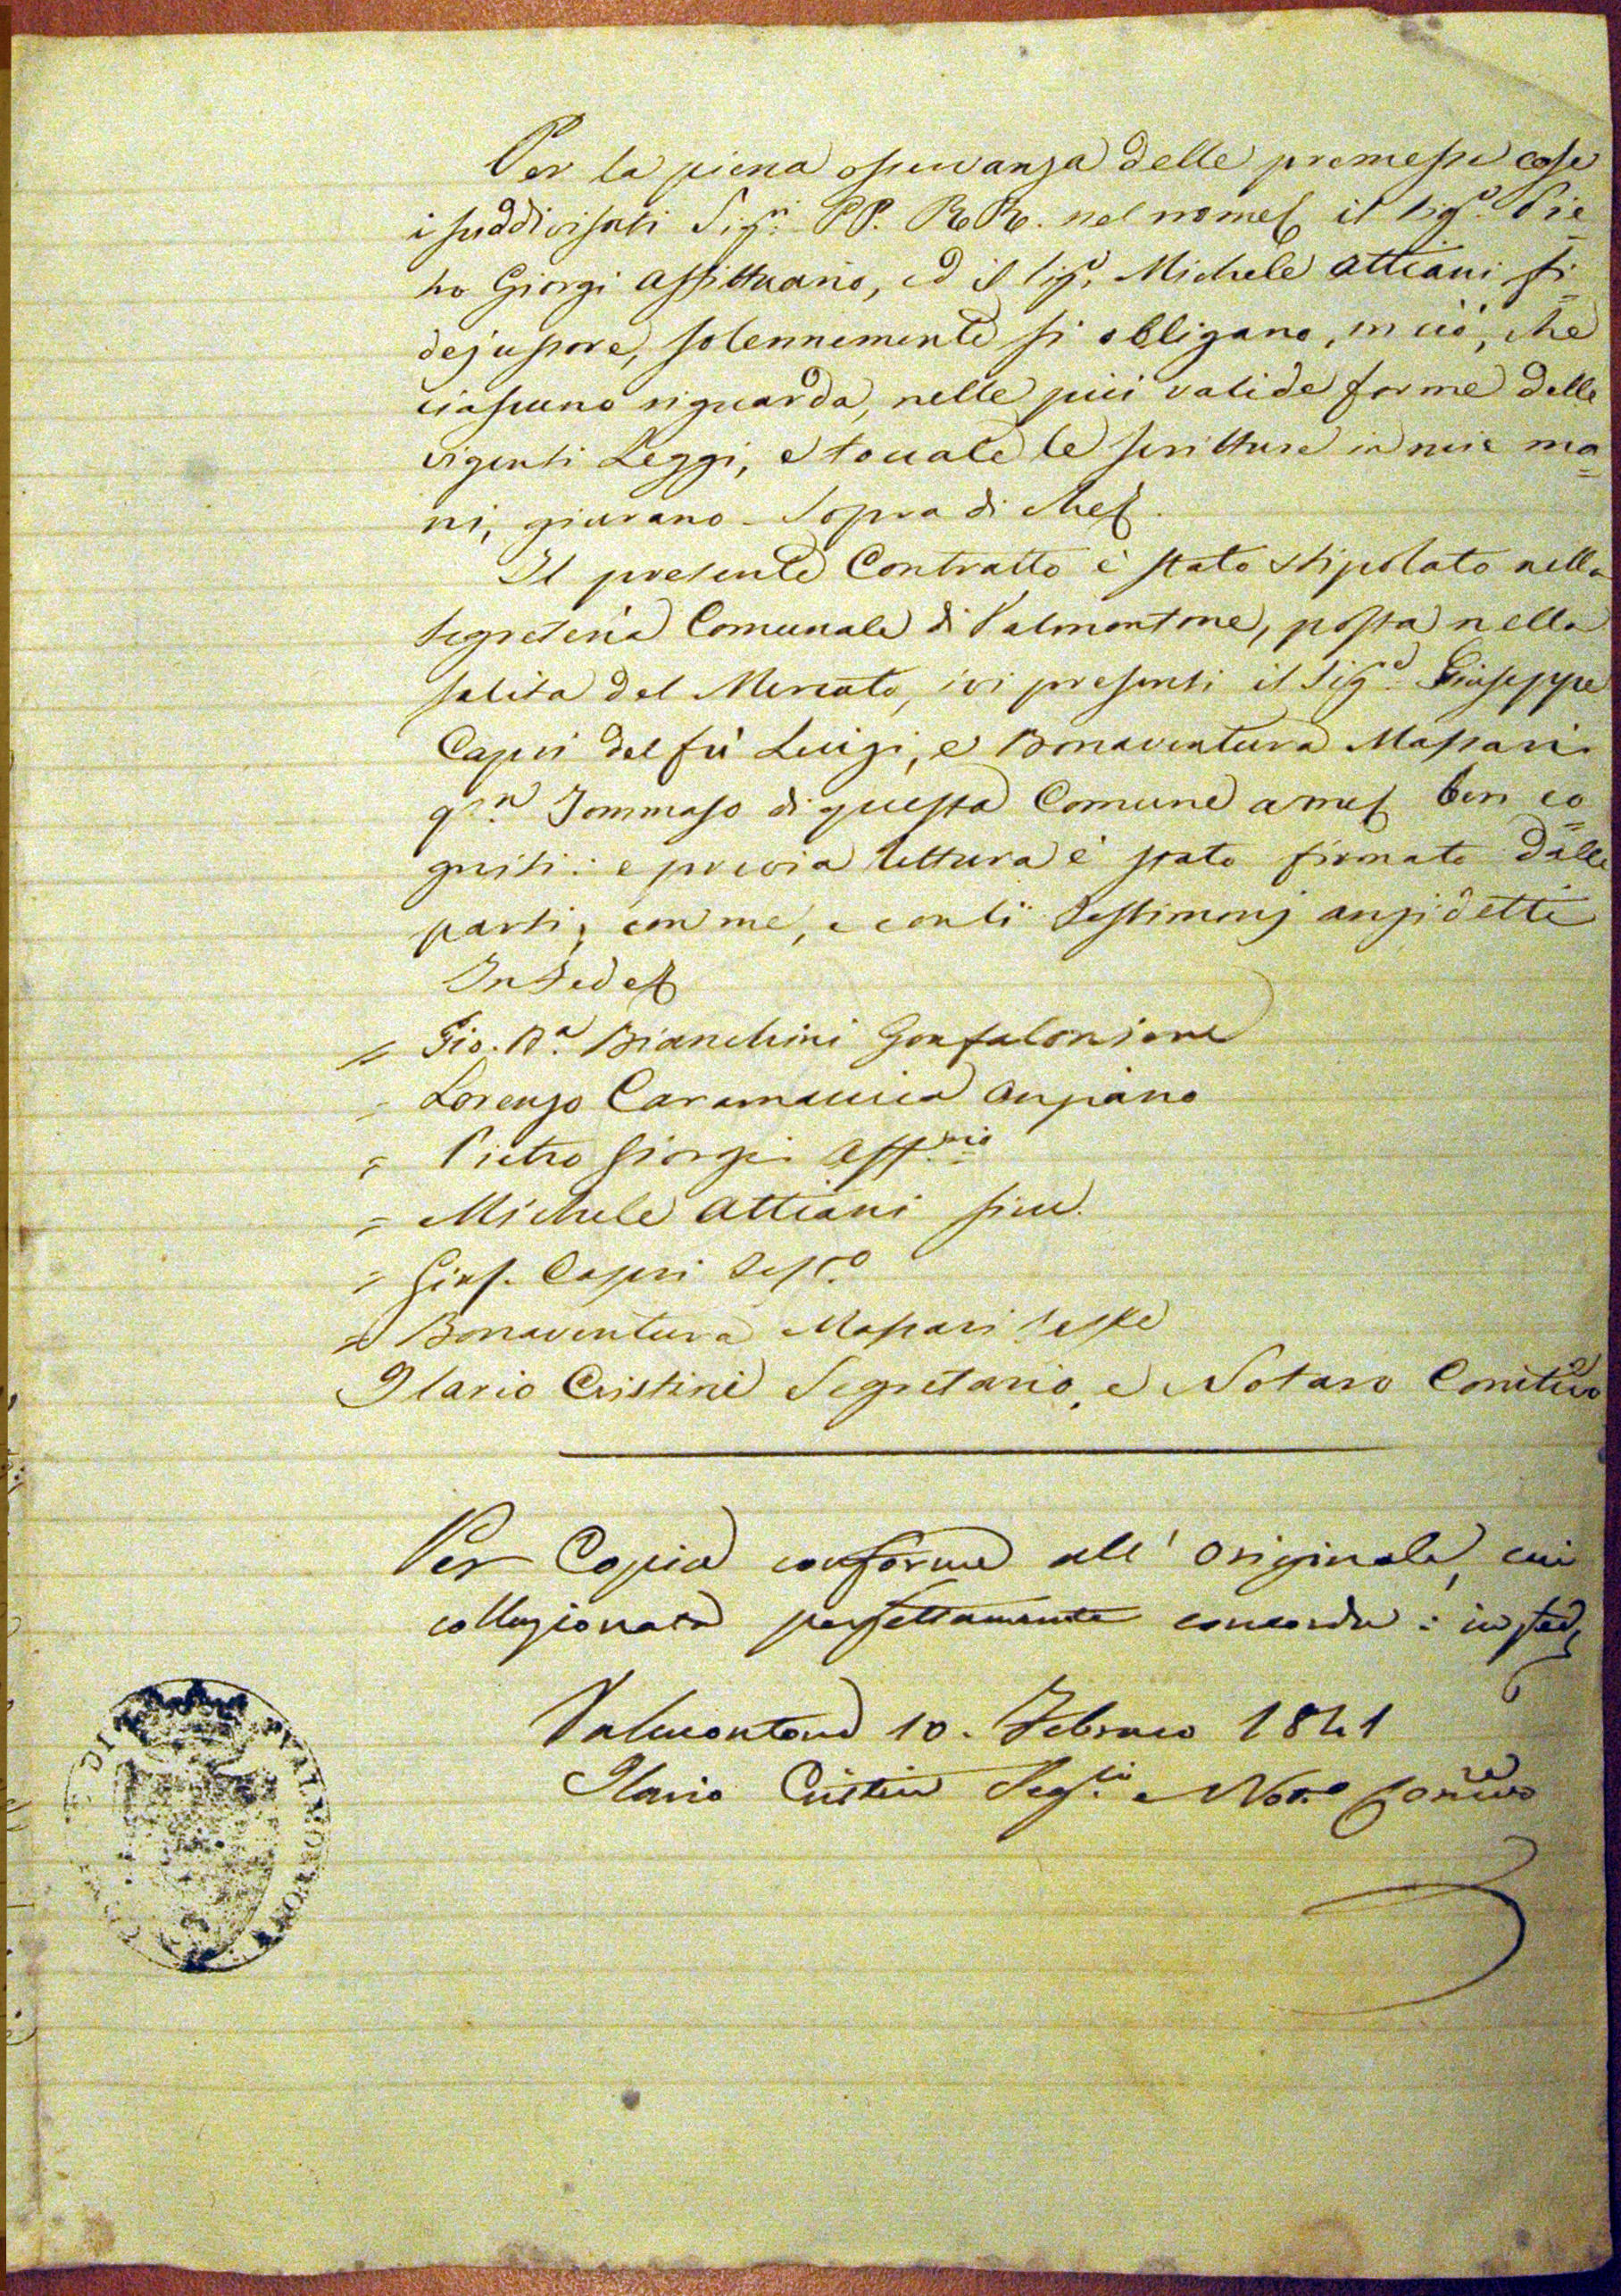 Per la piena osservanza delle premesse cose
i suddivisati Sigri PP. RR. nel nome il Sigr Pie=
tro Giorgi affittuario, ed il Sigr Michele Attiani fi=
dejussore, solennemente si obligano, in ciò, che
ciascuno riguarda, nelle più valide forme delle
vigenti Leggi, e toccate le scritture in mie ma=
ni, giurano. Sopra di che.
Il presente Contratto è stato stipolato nella
Segreteria Comunale di Valmontone, posta nella
salita del Mercato, ivi presenti il Sigr Giuseppe
Capri del fù Luigi, e Bonaventura Massari
qm Tommaso di questa Comune a me ben co=
gniti: e previa lettura è stato firmato dalle
parti, con me, e con li Testimonj anzidetti
In Fede
= Gio. Ba Bianchini Gonfaloniere
= Lorenzo Caramanica Anziano
= Pietro Giorgi Affrio
= Michele Attiani sicu.
= Gius. Capri Testo
= Bonaventura Massari Teste
Ilario Cristini Segretario, e Notaro Comitivo
Per Copia conforme all' originale, cui
collazionata perfettamente concorda: in fede
Valmontone 10. Febraro 1841
Ilario Cristini Segrio e Noto
DI VALMONTONE